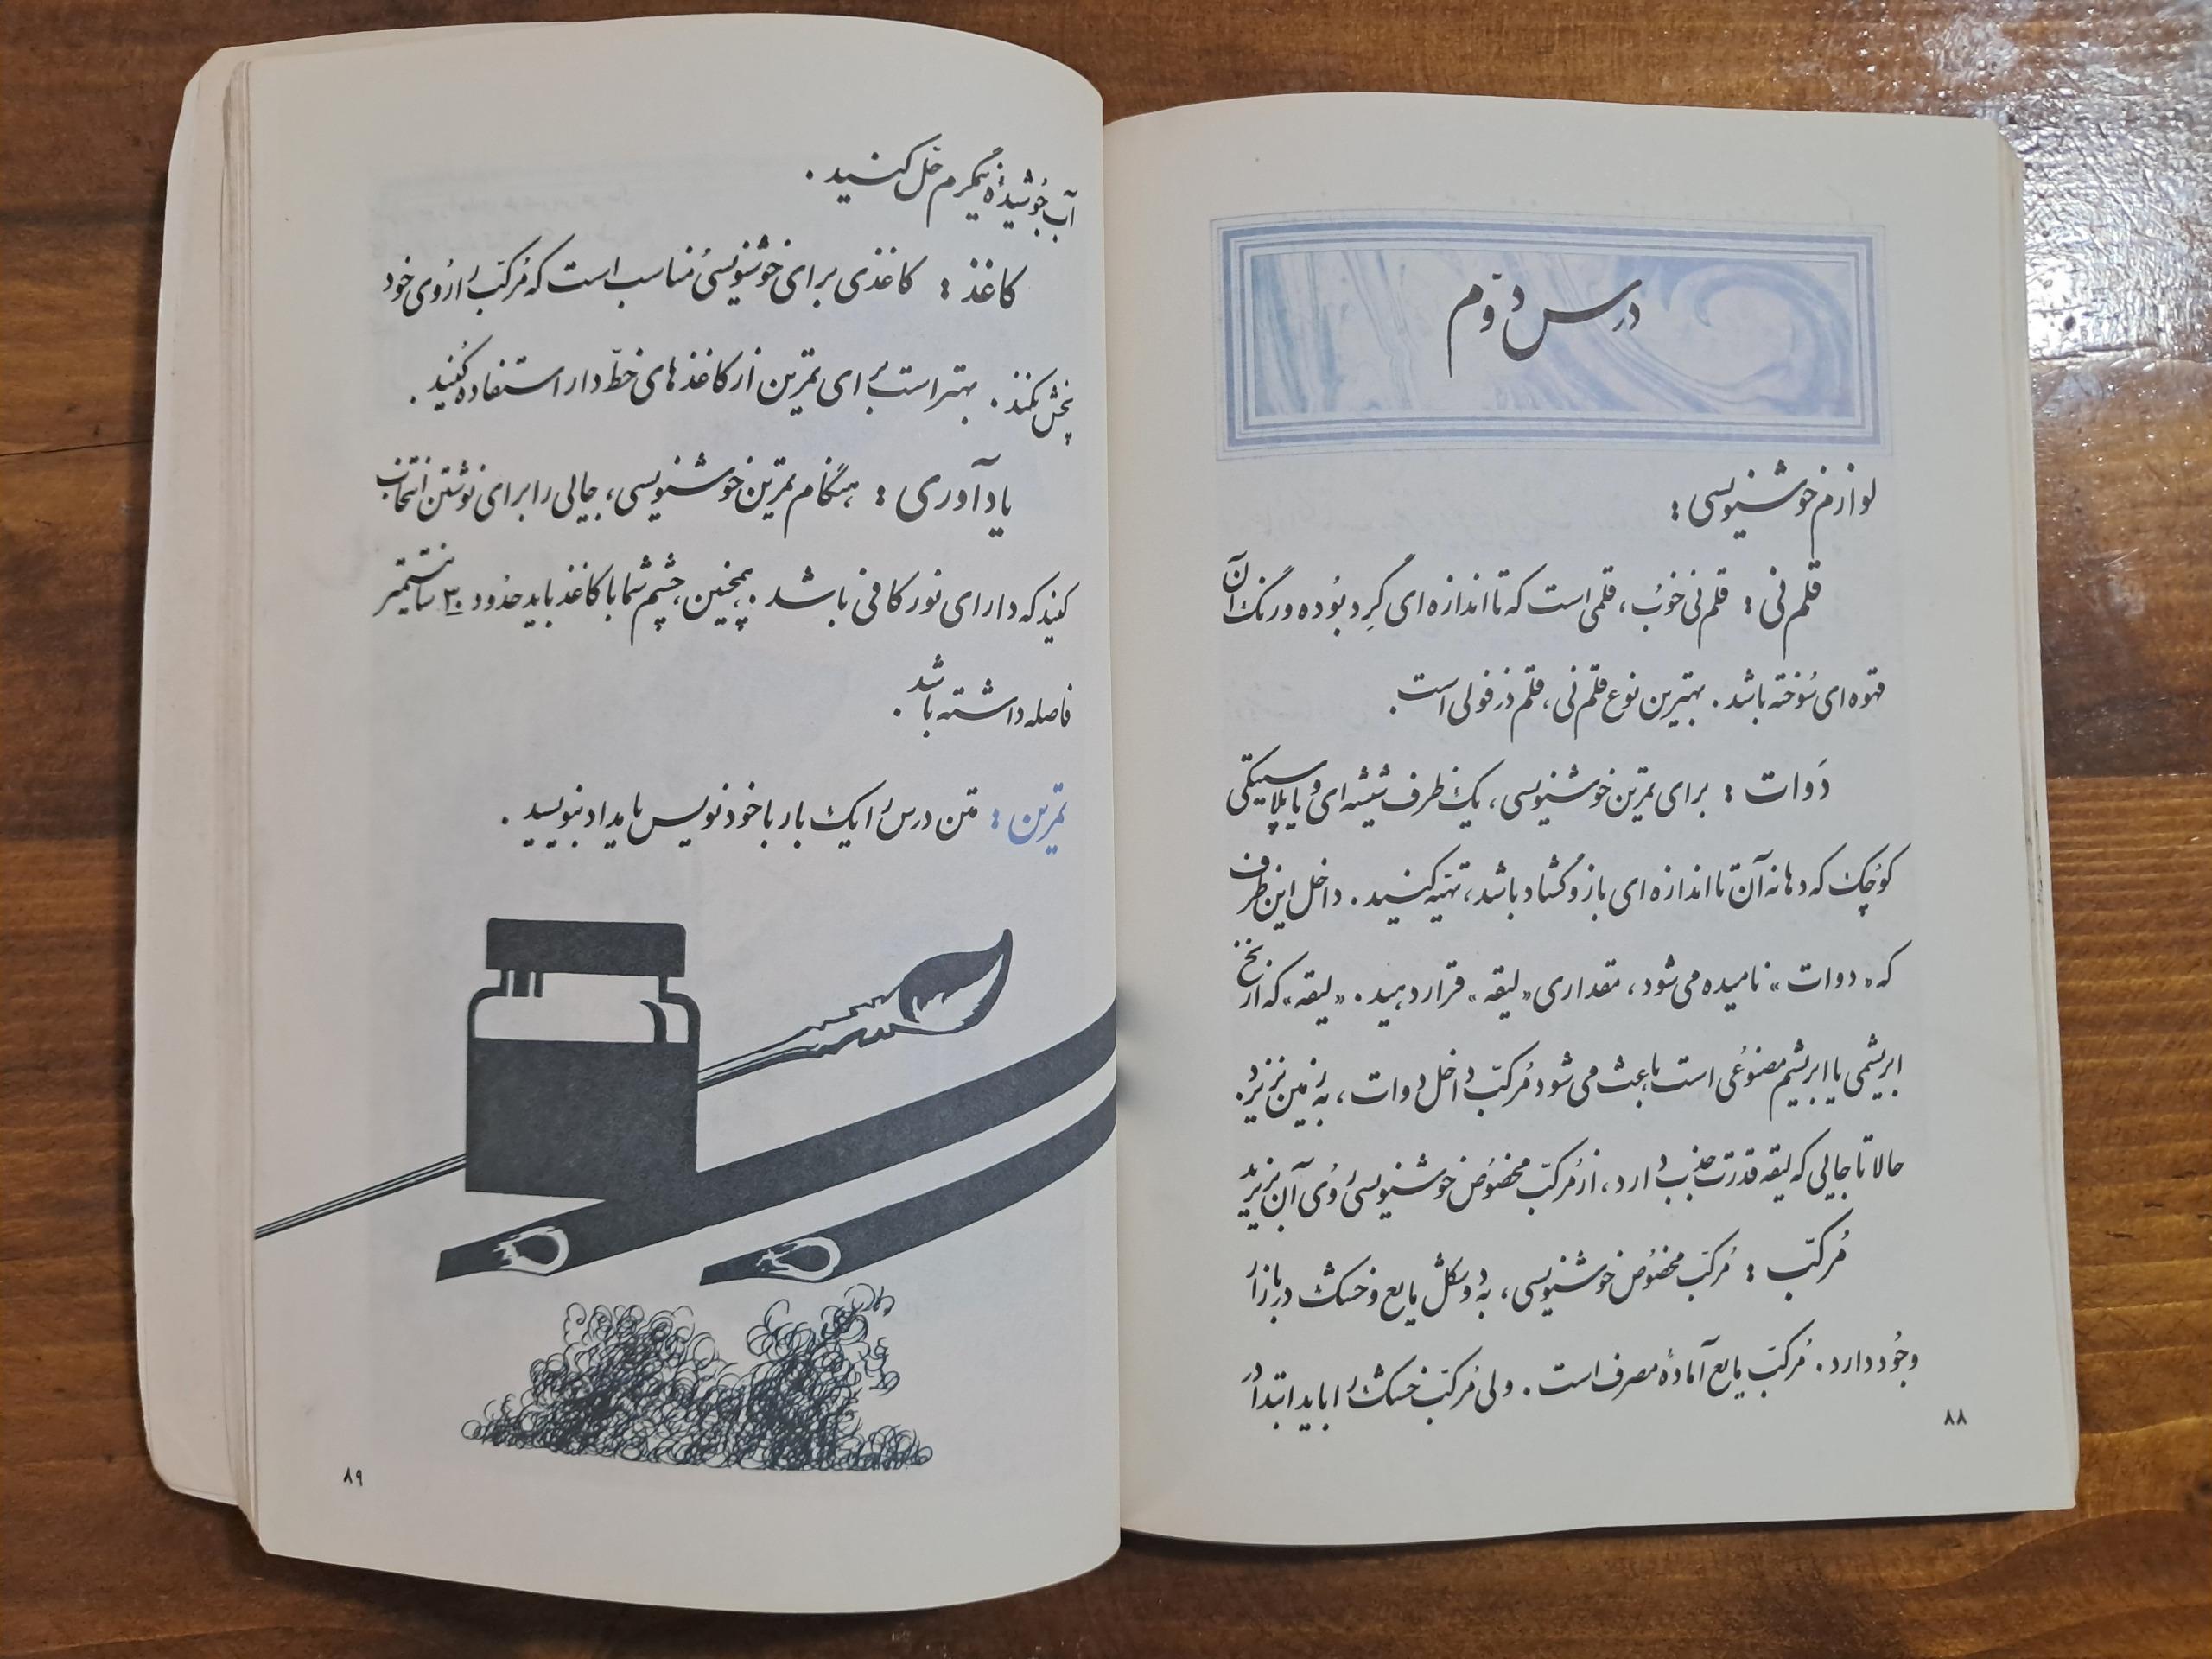 درس دوّم
لوازم خوشنویسی :
قلم نی : قلم نی خوُب، قلمی است که تا اندازه ای گِرد بوُده و رنگ آن
قهوه ای سُوخته باشد . بهترین نوع قلم نی، قلم دزفولی است .
دَوات : برای تمرین خوشنویسی، یک ظرف شیشه ای و یا پلاستیکی
کوُچک که دهانه آن تا اندازه ای باز و گشاد باشد، تهیّه کنید . داخل این ظرف
که «دوات» نامیده می شود، مقداری «لیقه» قرار دهید . «لیقه» که از نخ
ابریشمی یا ابریشم مصنوُعی است باعث می شود مُرکّب داخل دوات، به زمین نریزد .
حالا تا جایی که لیقه قدرت جذب دارد، از مُرکّب مخصُوص خوشنویسی رُوی آن بریزید
مُرکّب : مُرکّب مخصُوص خوشنویسی، به دو شکل مایع و خشک در بازار
وجُود دارد . مُرکّب مایع آمادهٔ مصرف است . ولی مُرکّب خشک را باید ابتدا در
۸۸
آب جوُشیدهٔ نیمگرم حَل کنید .
کاغذ : کاغذی برای خوشنویسی مُناسب است که مُرکّب را رُوی خود
پخش نکند . بهتر است برای تمرین از کاغذهای خطّ دار استفاده کُنید .
یادآوری : هنگام تمرین خوشنویسی، جایی را برای نوشتن انتخاب
کنید که دارای نور کافی باشد . همچنین چشم شما با کاغذ باید حدُود ۳۰ سانتیمتر
فاصله داشته باشد .
تمرین : متن درس را یک بار با خودنویس یا مداد بنویسید .
۸۹